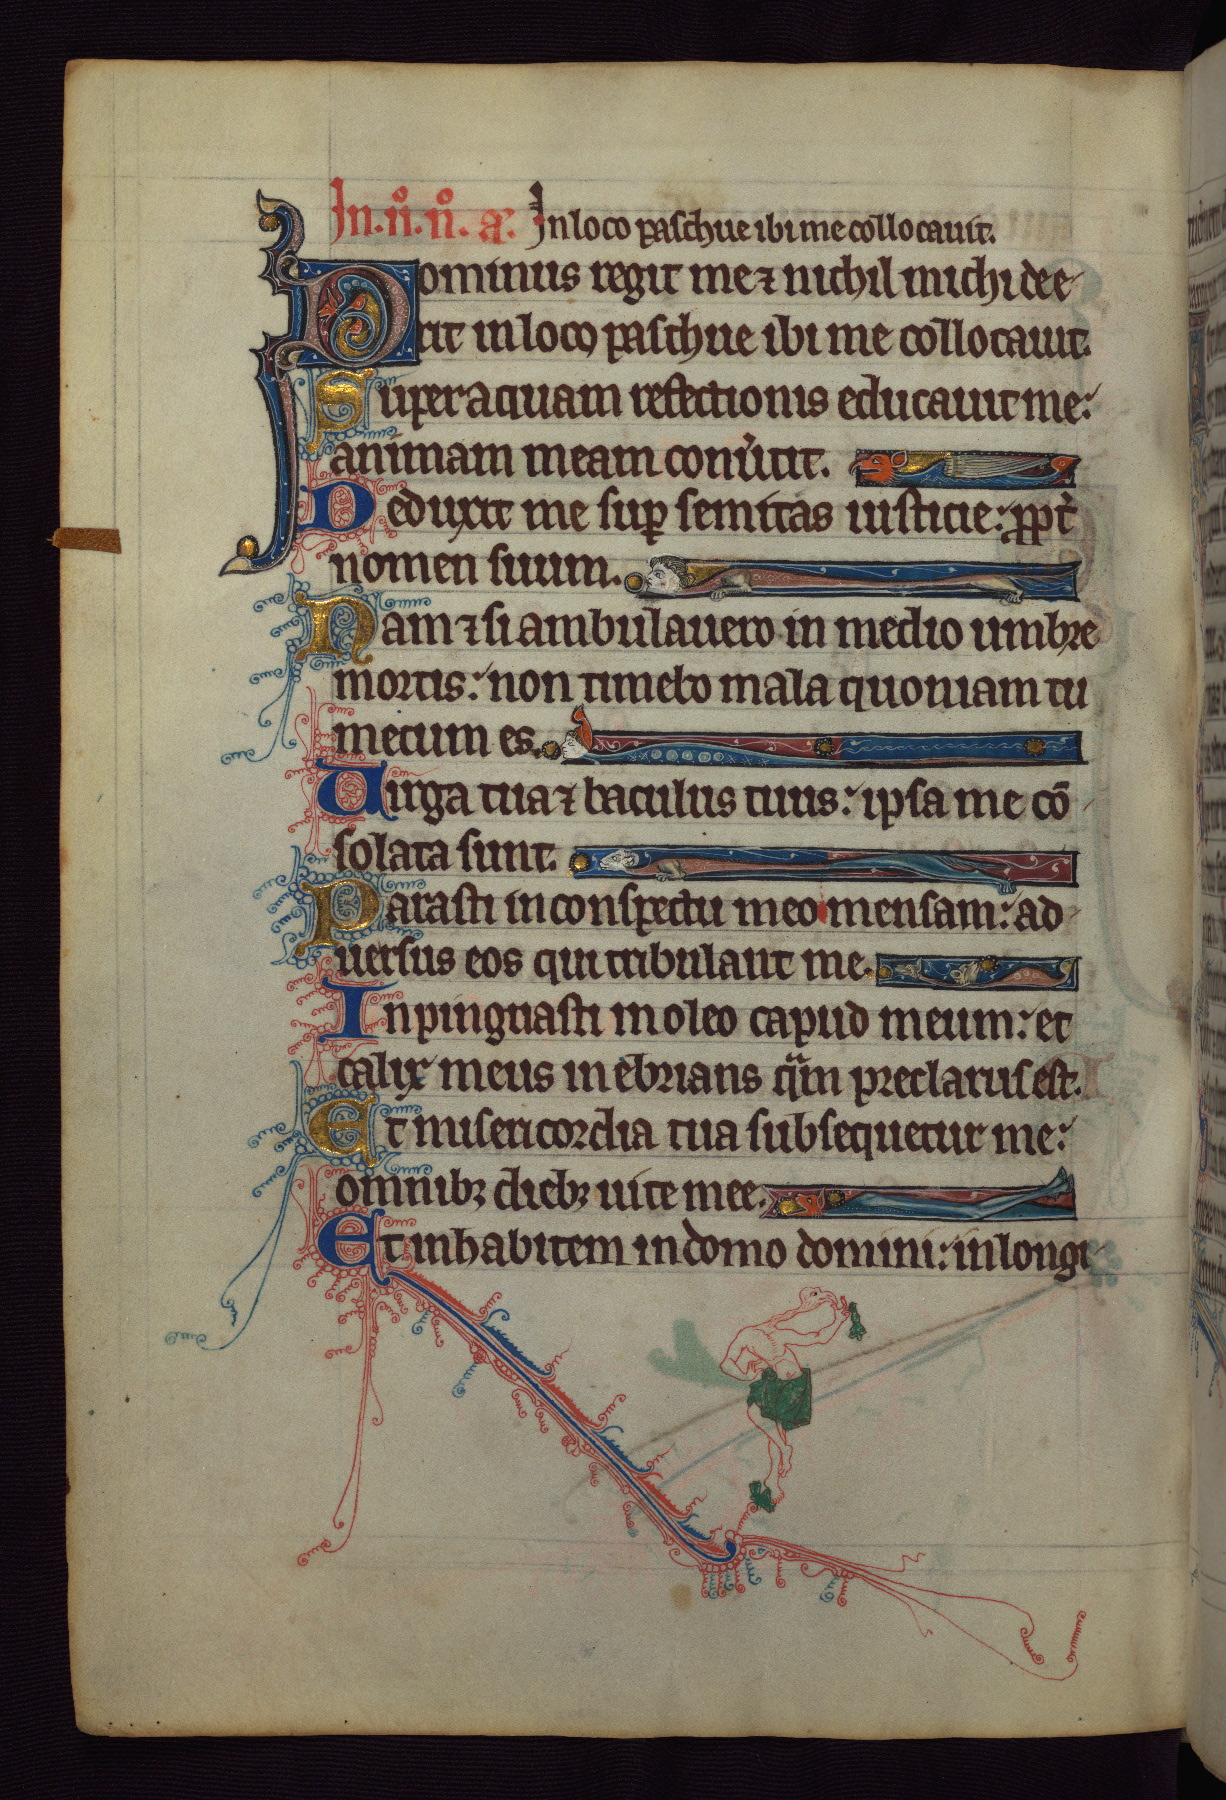 In. n̊. n̊. a᷒. In loco paschue ibi me collocauit.
Dominus regit me ⁊ nichil michi dee
rit in loco paschue ibi me collocauit.
Super aquam refectionis educauit me:
animam meam conu̓tit.
Deduxit me suꝑ semitas iusticie: ꝓpt̓
nomen suum.
Nam ⁊ si ambulauero in medio umbre
mortis: non timebo mala quoniam tu
mecum es.
Uirga tua ⁊ baculus tuus: ipsa me co̅
solata sunt.
Parasti in conspectu meo mensam: ad
uersus eos qui tribulant me.
Inpinguasti in oleo capud meum: et
calix meus inebrians qͣm preclarus est.
Et misericordia tua subsequetur me:
omnibꝫ diebꝫ uite mee.
Et inhabitem in domo domini: in longi